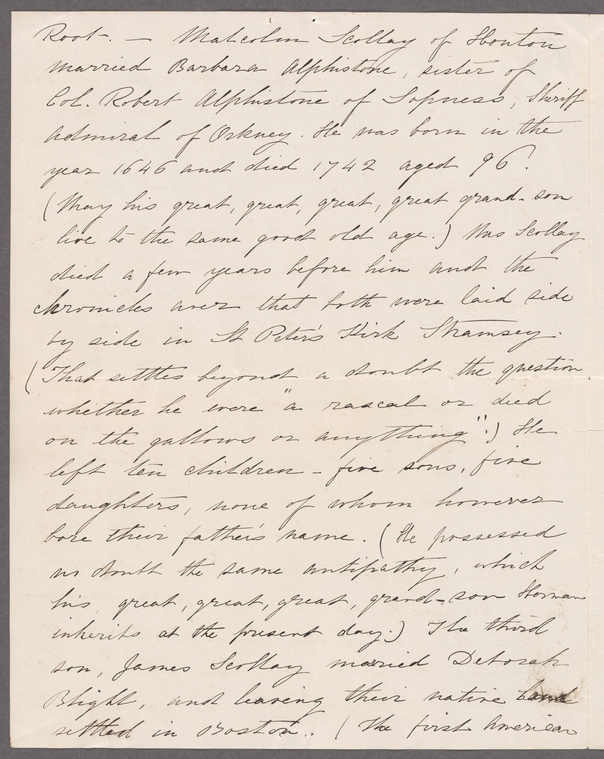 Root. — Malcolm Scollay of Hounton
married Barbara Alphistone, sister of
Col. Robert Alphistone of Sopness, Sheriff
Admiral of Orkney. He was born in the
year 1646 and died 1742 aged 96.
(May his great, great, great, great grand-son
live to the same good old age.) Mrs Scollay
died a few years before him and the
chronicles aver that both were laid side
by side in St Peter's Kirk Stramsey.
(That settles beyond a doubt the question
whether he were "a rascal or died
on the gallows or anything".) He
left ten children – five sons, five
daughters, none of whom however
bore their father's name. (He possessed
no doubt the same antipathy, which
his, great, great, great, grand-son
inherits at the present day.) The third
son, James Scollay married Deborah
Blight, and leaving their native land
settled in Boston.. (The first American